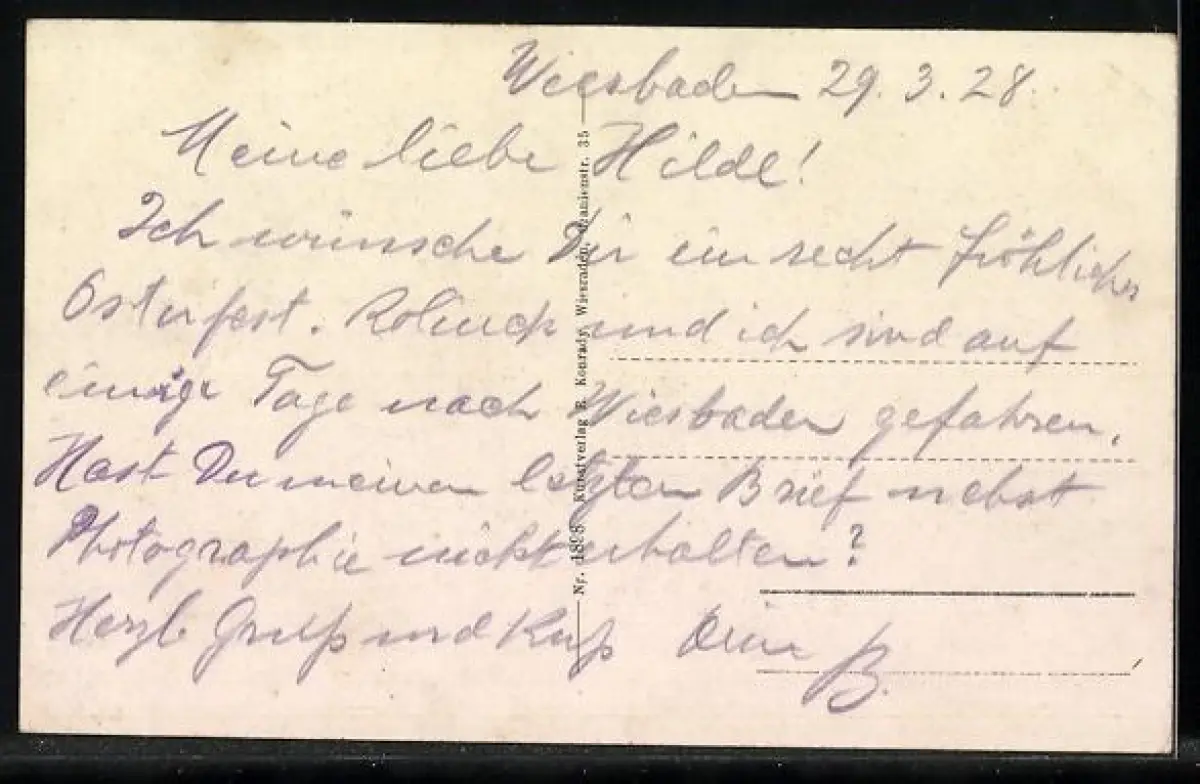 Wiesbaden 29.3.28.
Meine liebe Hilde!
Ich wünsche Dir ein recht fröhliches
Osterfest. und ich sind auf
einige Tage nach Wiesbaden gefahren.
Hast Du meinen letzten Brief nebst
Photographie nicht erhalten?
Herzl. Gruß und Kuß Dein B.
Nr. 1898 Kunstverlag E. Konrady, Wiesbaden, Oranienstr. 35